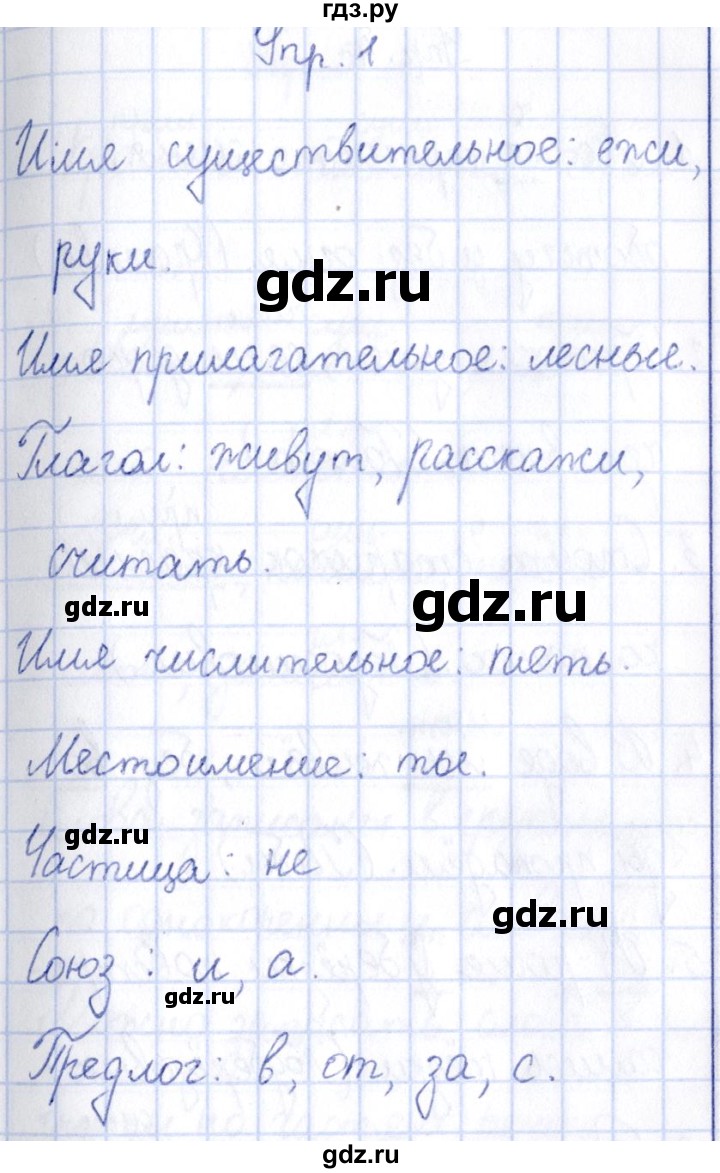 гдз.ру
Упр. 1
Имя существительное: ежи,
руки.
gdz.ru
Имя прилагательное: лесные.
Глагол: живут, расскажи,
считать.
gdz.ru
gdz.ru
Имя числительное: пять.
Местоимение: ты.
gdz.ru
Частица: не
gdz.ru
Союз: и, а.
gdz.ru
Предлог: в, от, за, с.
gdz.ru